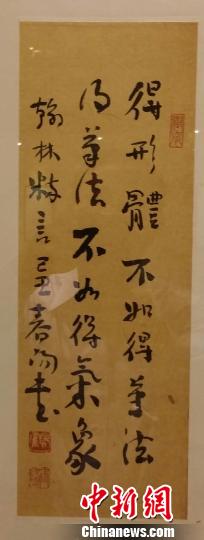 得形體不如得筆法
得筆法不如得氣象
翰林粹言己丑春
中新网
Chinanews.com